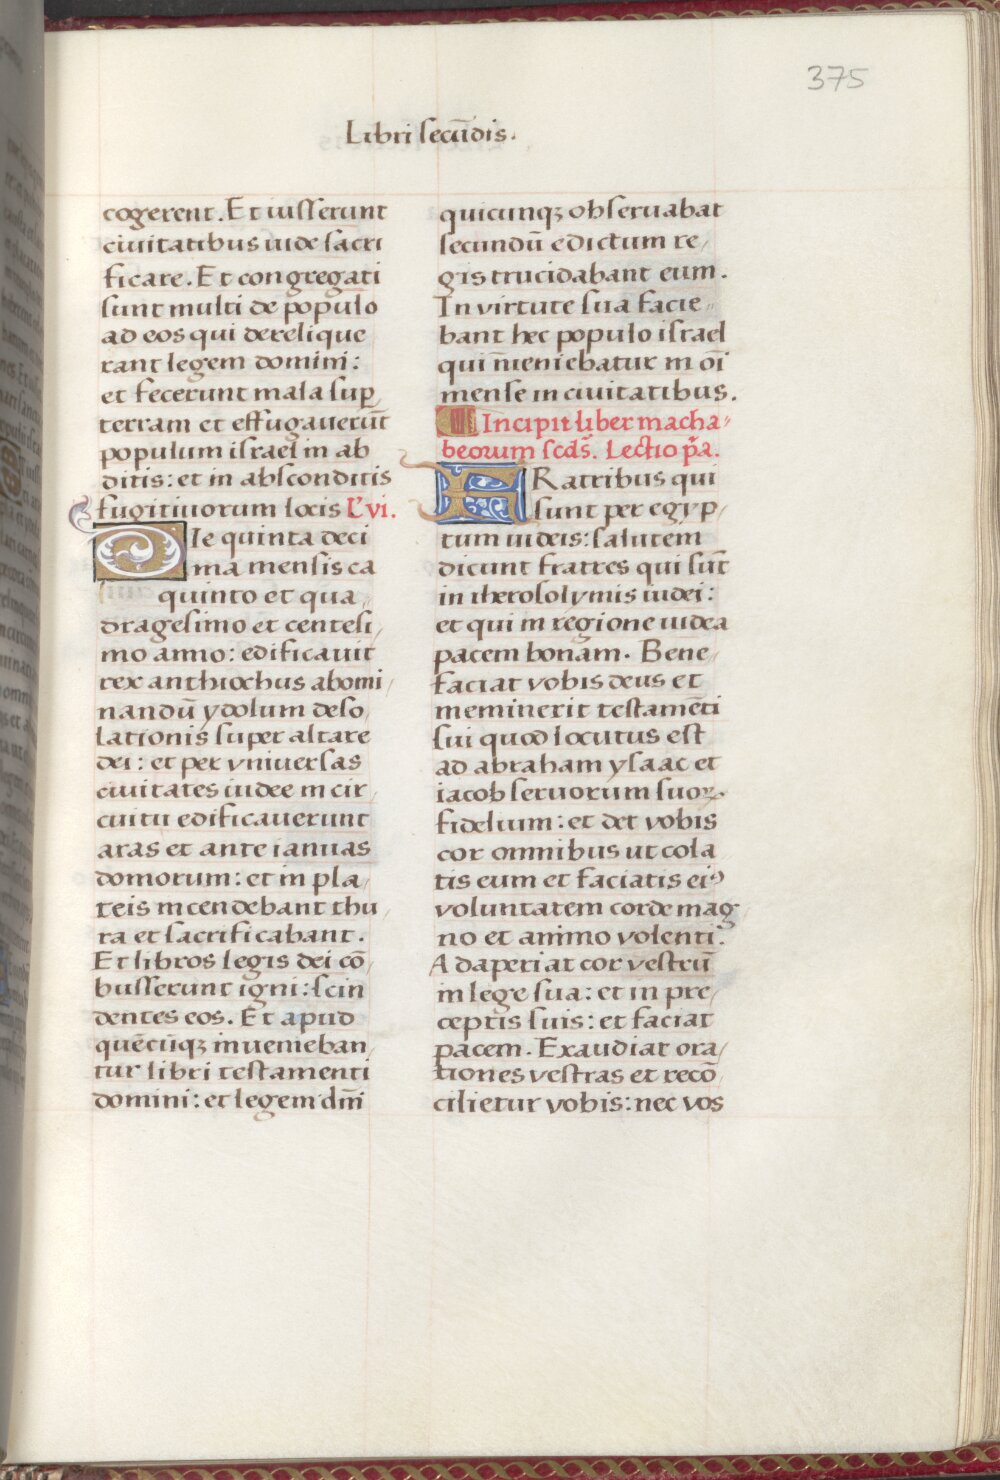 375
Libri secūdis.
cogerent. Et iusserunt
ciuitatibus iude sacri
ficare. Et congregati
sunt multi de populo
ad eos qui derelique
rant legem domini:
et fecerunt mala sup̄
terram et effugauerūt
populum israel in ab
ditis: et in absconditis
fugitiuorum locis L'vi.
DIe quinta deci
ma mensis ca
quinto et qua,
dragesimo et centesi,
mo anno: edificauit
rex anthiochus abomi,
nandū ydolum deso,
lationis super altare
dei: et per vniuersas
ciuitates iudee in cir,
cuitu edificauerunt
aras et ante ianuas
domorum: et in pla,
teis incendebant thu,
ra et sacrificabant.
Et libros legis dei cō,
busserunt igni: scin
dentes eos. Et apud
quēcūqꝫ inuenieban,
tur libri testamenti
domini: et legem dm̄i
quicunqꝫ obseruabat
secundū edictum re,
gis trucidabant eum.
In virtute sua facie,
bant hec populo israel
qui īnueniebatur in oī
mense in ciuitatibus.
Incipit liber macha,
beorum scd̄s. Lectio p̄a.
FRatribus qui
sunt per egyp,
tum iudeis: salutem
dicunt fratres qui sūt
in iherosolymis iudei:
et qui in regione iudea
pacem bonam. Bene,
faciat vobis deus et
meminerit testamēti
sui quod locutus est
ad abraham ysaac et
iacob seruorum suoꝝ.
fidelium: et det vobis
cor omnibus ut cola
tis eum et faciatis eiꝰ
voluntatem corde mag
no et animo volenti.
Adaperiat cor vestrū
in lege sua: et in pre,
ceptis suis: et faciat
pacem. Exaudiat ora,
tiones vestras et recō,
cilietur vobis: nec vos